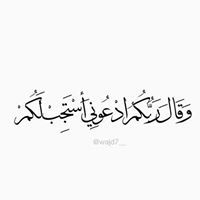 وَقَالَ رَبُّكُمُ ادْعُونِي أَسْتَجِبْ لَكُمْ
@wajd7__